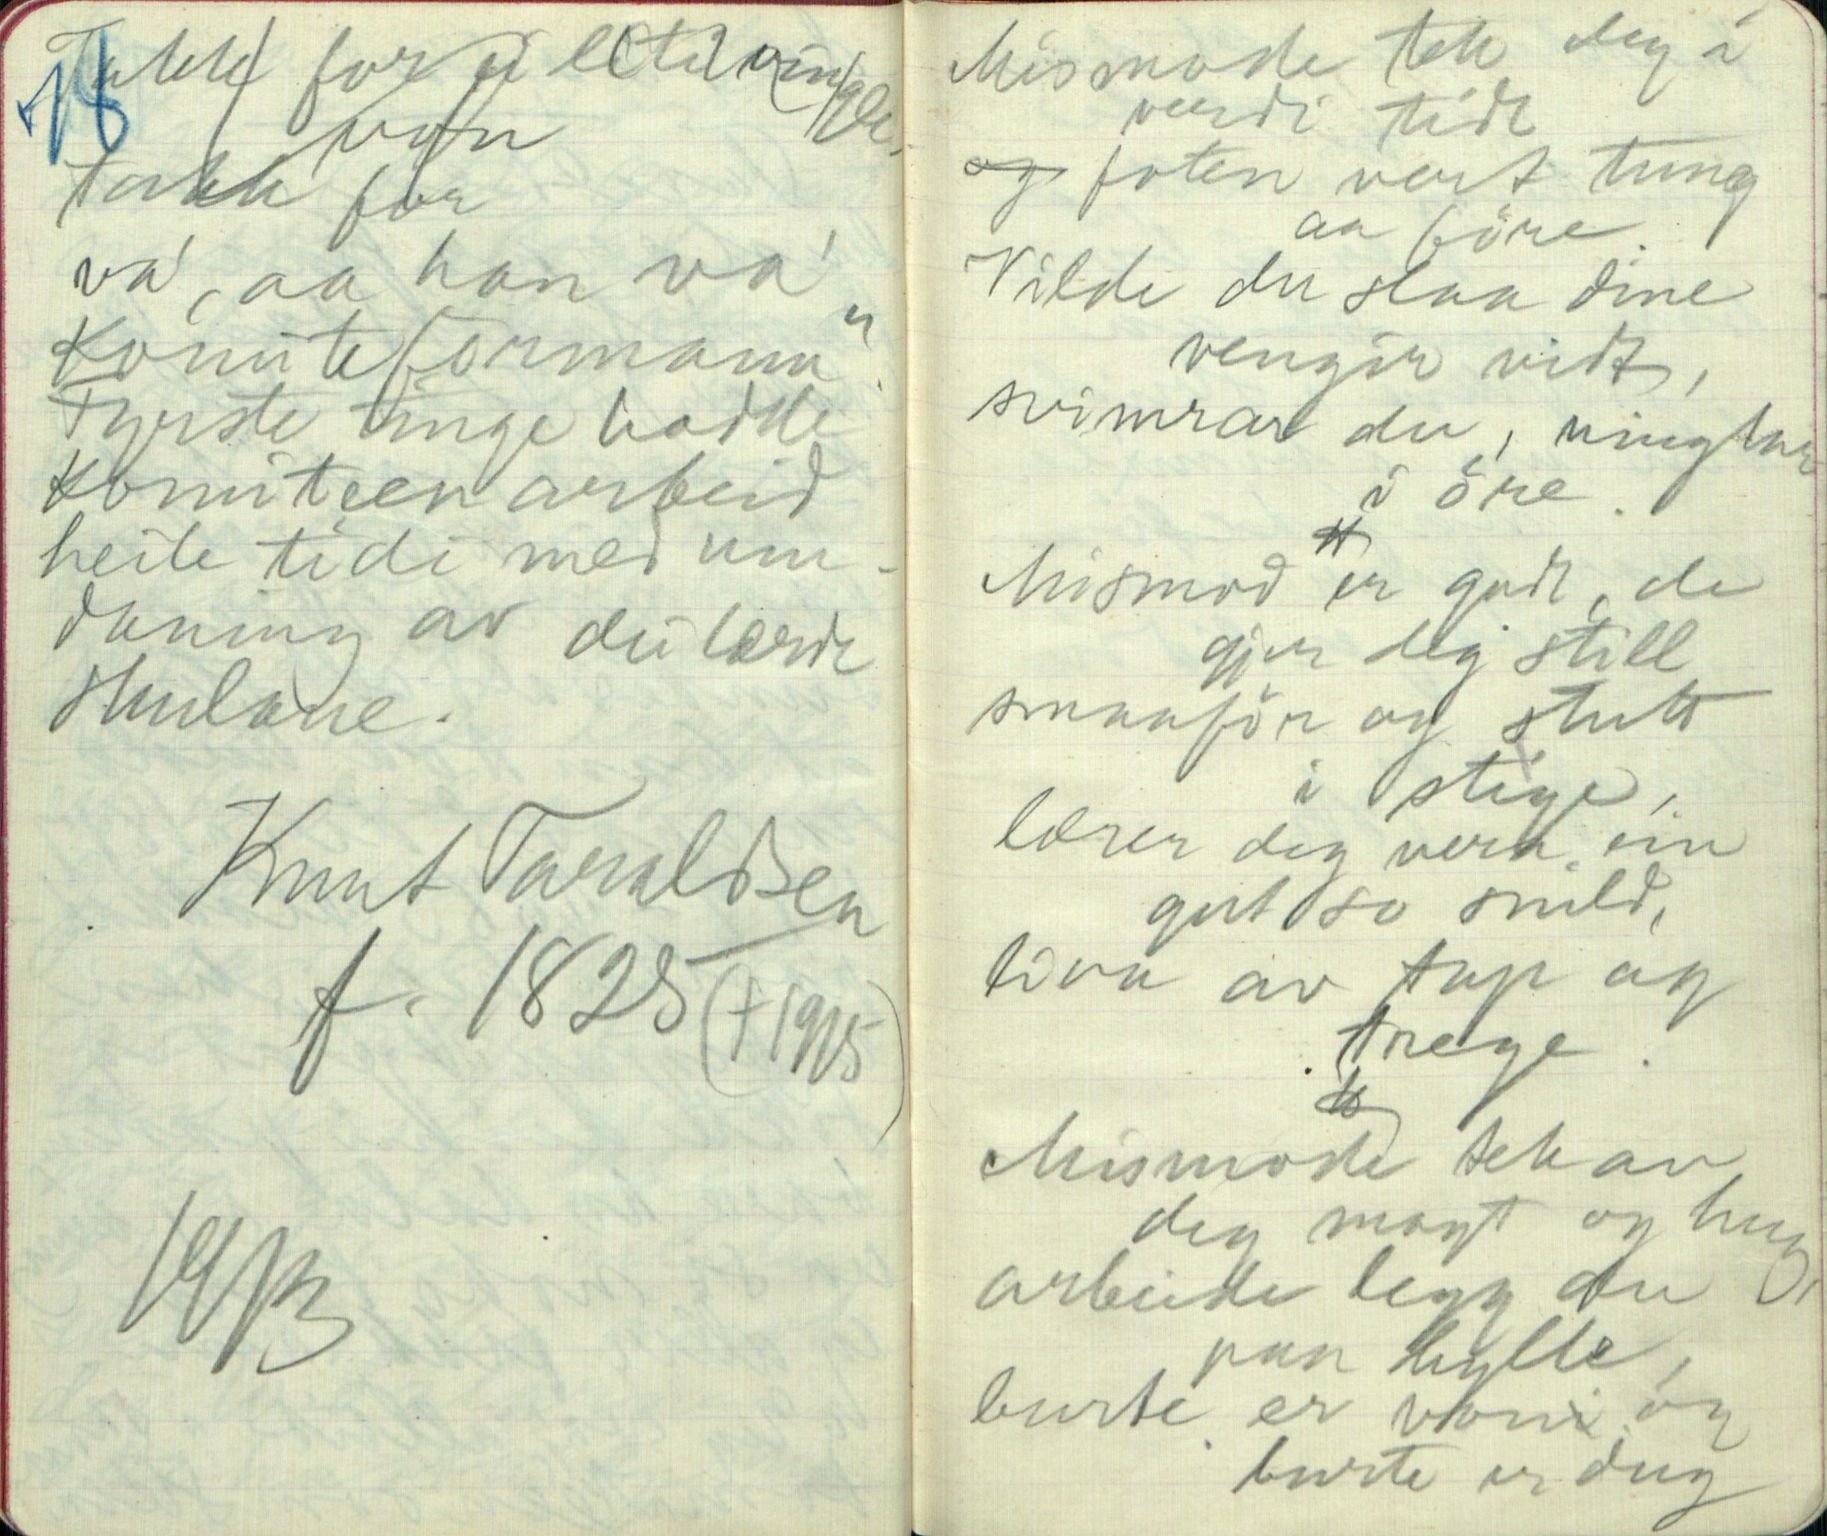 18
Takk for ei liti
von
Takk for
va', aa han va'
Komiteformann".
Fyrste tinge hadde
Komiteen arbeid
heile tidi med um-
daning av dei lærde
skulane.
Knut Taraldsen
f. 1825 († 1915)
Mismode tek deg i
verdi tidt
og foten vert tung
aa före.
Vilde du slaa dine
vengir vidt,
svimrar du, ringlar
i öre.
Mismod er godt, de
gjer deg still
smaaför og stutt
i stige,
lærer deg vera ein
gut so snild,
liva av tap og
trege.
Mismode tek av
deg magt og hug,
arbeide legg du
paa hylle,
burte er voni og
burte er dug